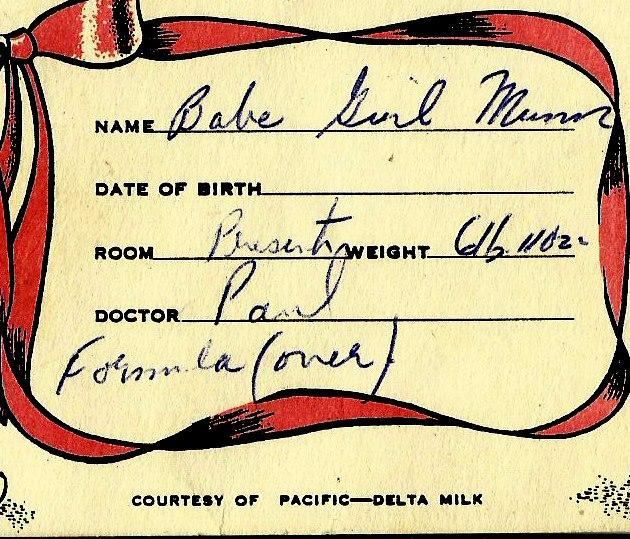 NAME Babe Girl Munro
DATE OF BIRTH
ROOM Present WEIGHT 6lb 11oz
DOCTOR Paul
Formula (over)
COURTESY OF PACIFIC—DELTA MILK